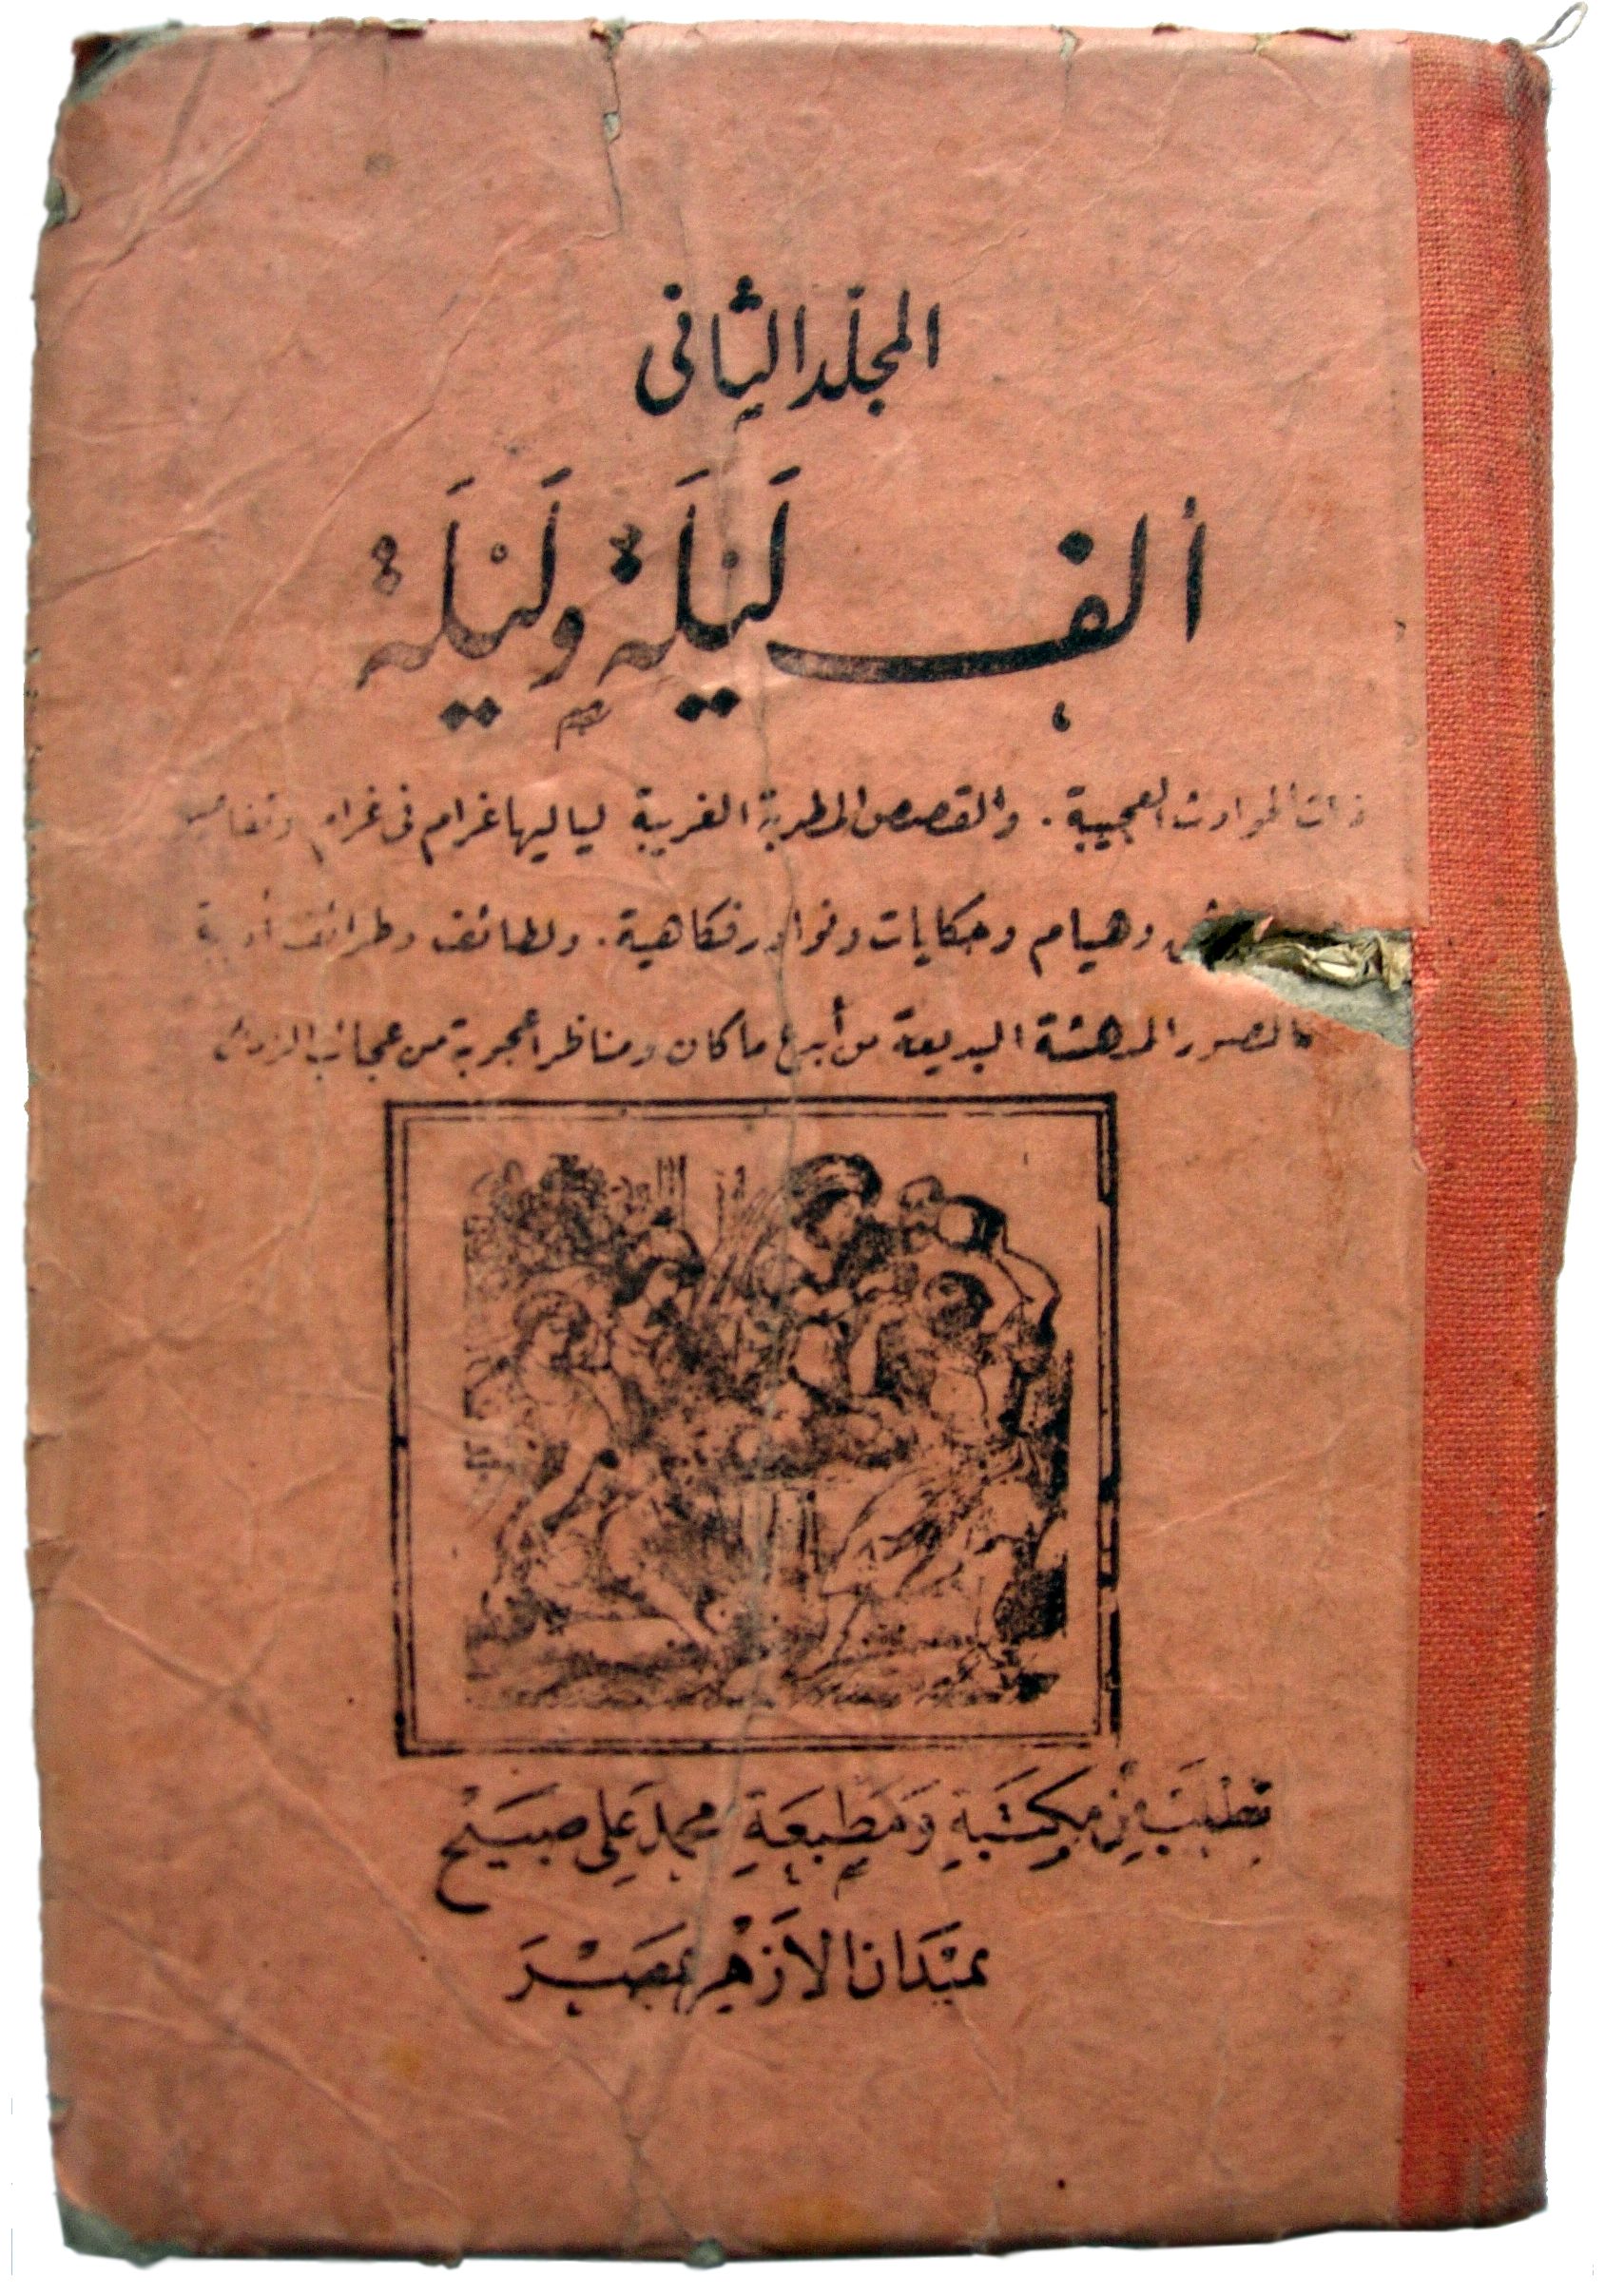 المجلد الثاني
ألف ليلة وليلة
ذات الحوادث العجيبة . والقصص المطربة الغريبة لياليها غرام في غرام
وهيام وحكايات ونوادر فكاهية . ولطائف وطرائف أدبية
والصور المدهشة البديعة من أبدع ما كان ومناظر أعجوبة من عجائب الزمان
تطلب من مكتبة ومطبعة محمد علي صبيح
بميدان الأزهر بمصر